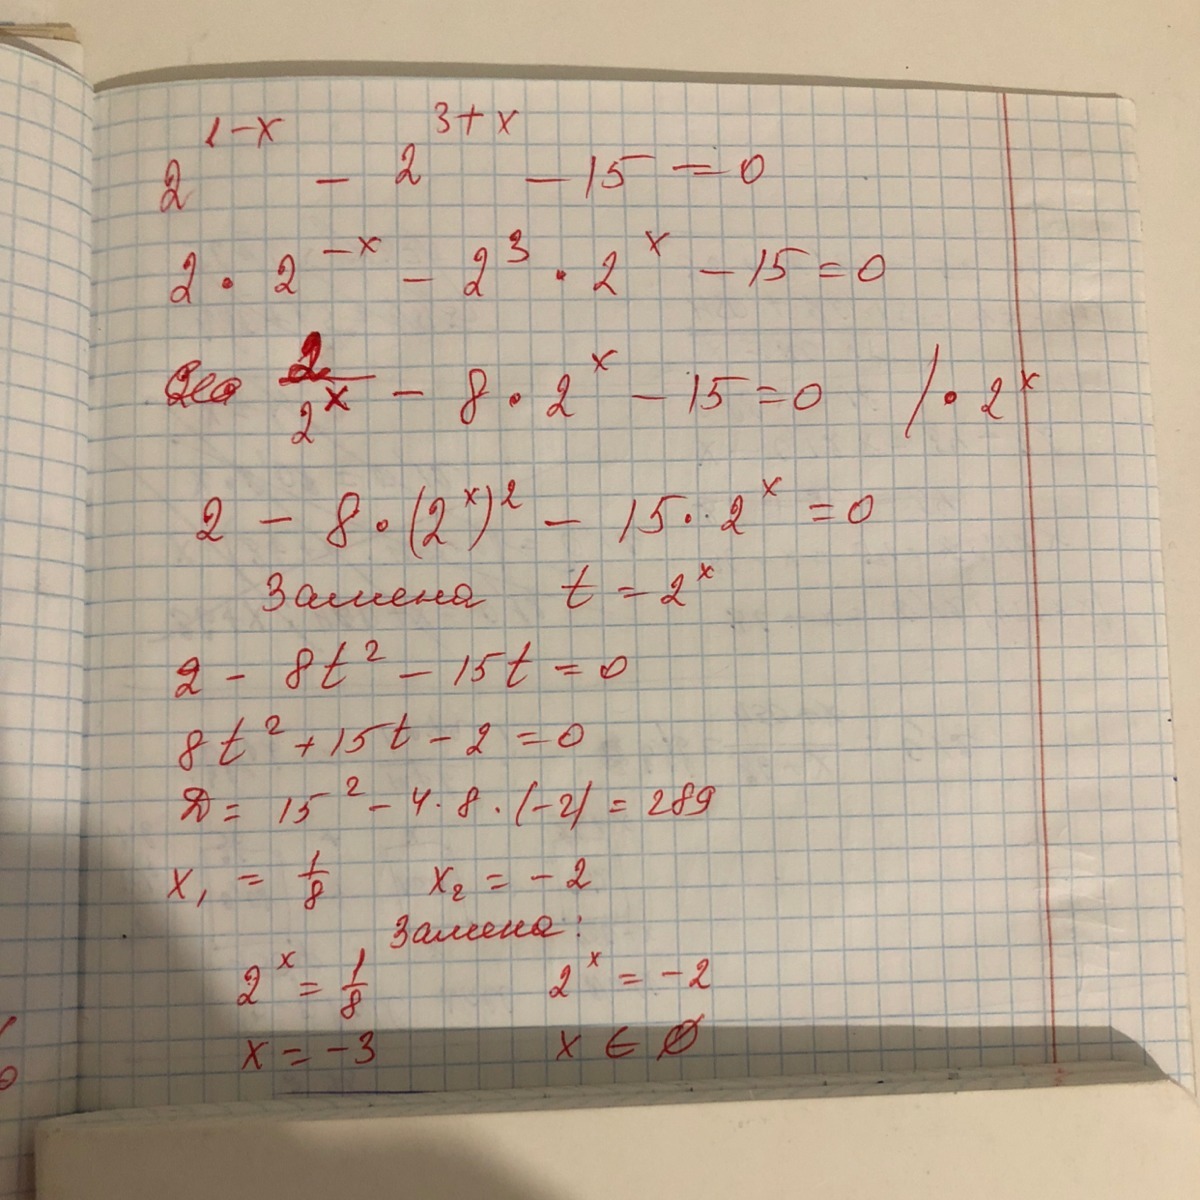 2^{1-x} - 2^{3+x} - 15 = 0
2 · 2^{-x} - 2^3 · 2^x - 15 = 0
2/2^x - 8 · 2^x - 15 = 0 / · 2^x
2 - 8 · (2^x)^2 - 15 · 2^x = 0
Замена t = 2^x
2 - 8t^2 - 15t = 0
8t^2 + 15t - 2 = 0
D = 15^2 - 4 · 8 · (-2) = 289
x₁ = 1/8 x₂ = -2
Замена:
2^x = 1/8 2^x = -2
x = -3 x ∈ ∅